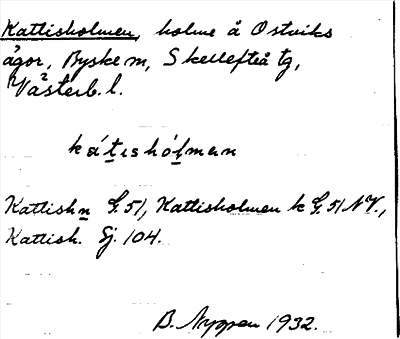 Kattisholmen, holme å Ostviks
ägor, Byske sn, Skellefteå tg,
Västerb. l.
kátıshólmen
Kattishn G. 51, Kattisholmen k G. 51 NV.,
Kattish. Sj. 104.
B. Nygren 1932.